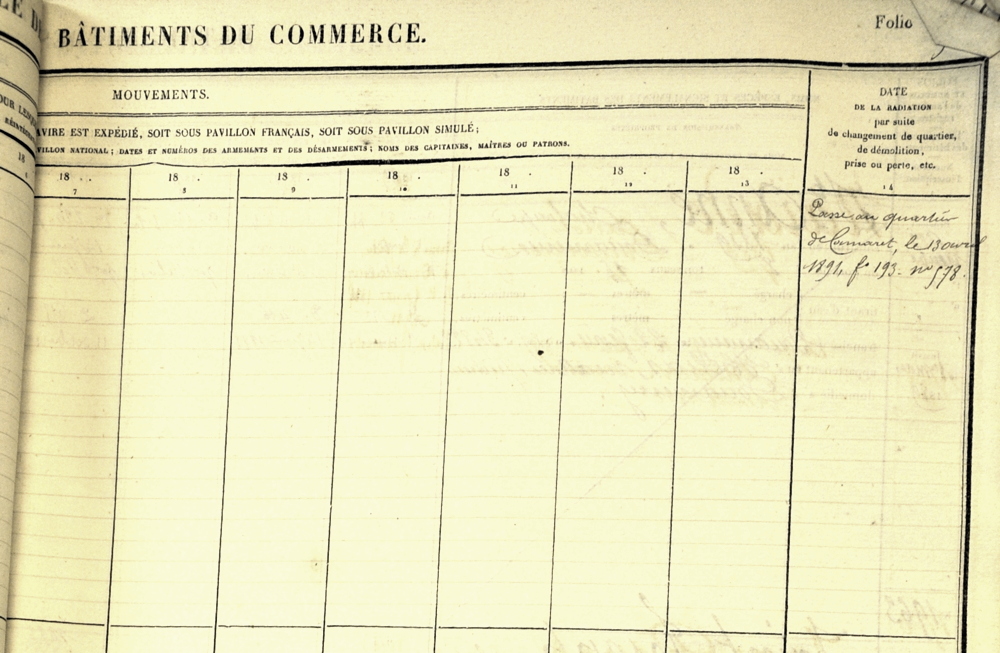 BÂTIMENTS DU COMMERCE.
Folio
MOUVEMENTS.
AVIRE EST EXPÉDIÉ, SOIT SOUS PAVILLON FRANÇAIS, SOIT SOUS PAVILLON SIMULÉ;
VILLON NATIONAL; DATES ET NUMÉROS DES ARMEMENTS ET DES DÉSARMEMENTS; NOMS DES CAPITAINES, MAÎTRES OU PATRONS.
DATE
DE LA RADIATION
par suite
de changement de quartier,
de démolition,
prise ou perte, etc.
18 18 18 18 18 18 18
7 8 9 10 11 12 13 14
Passé au quartier
de Camaret, le 13 avril
1891, fo 193. no 578.